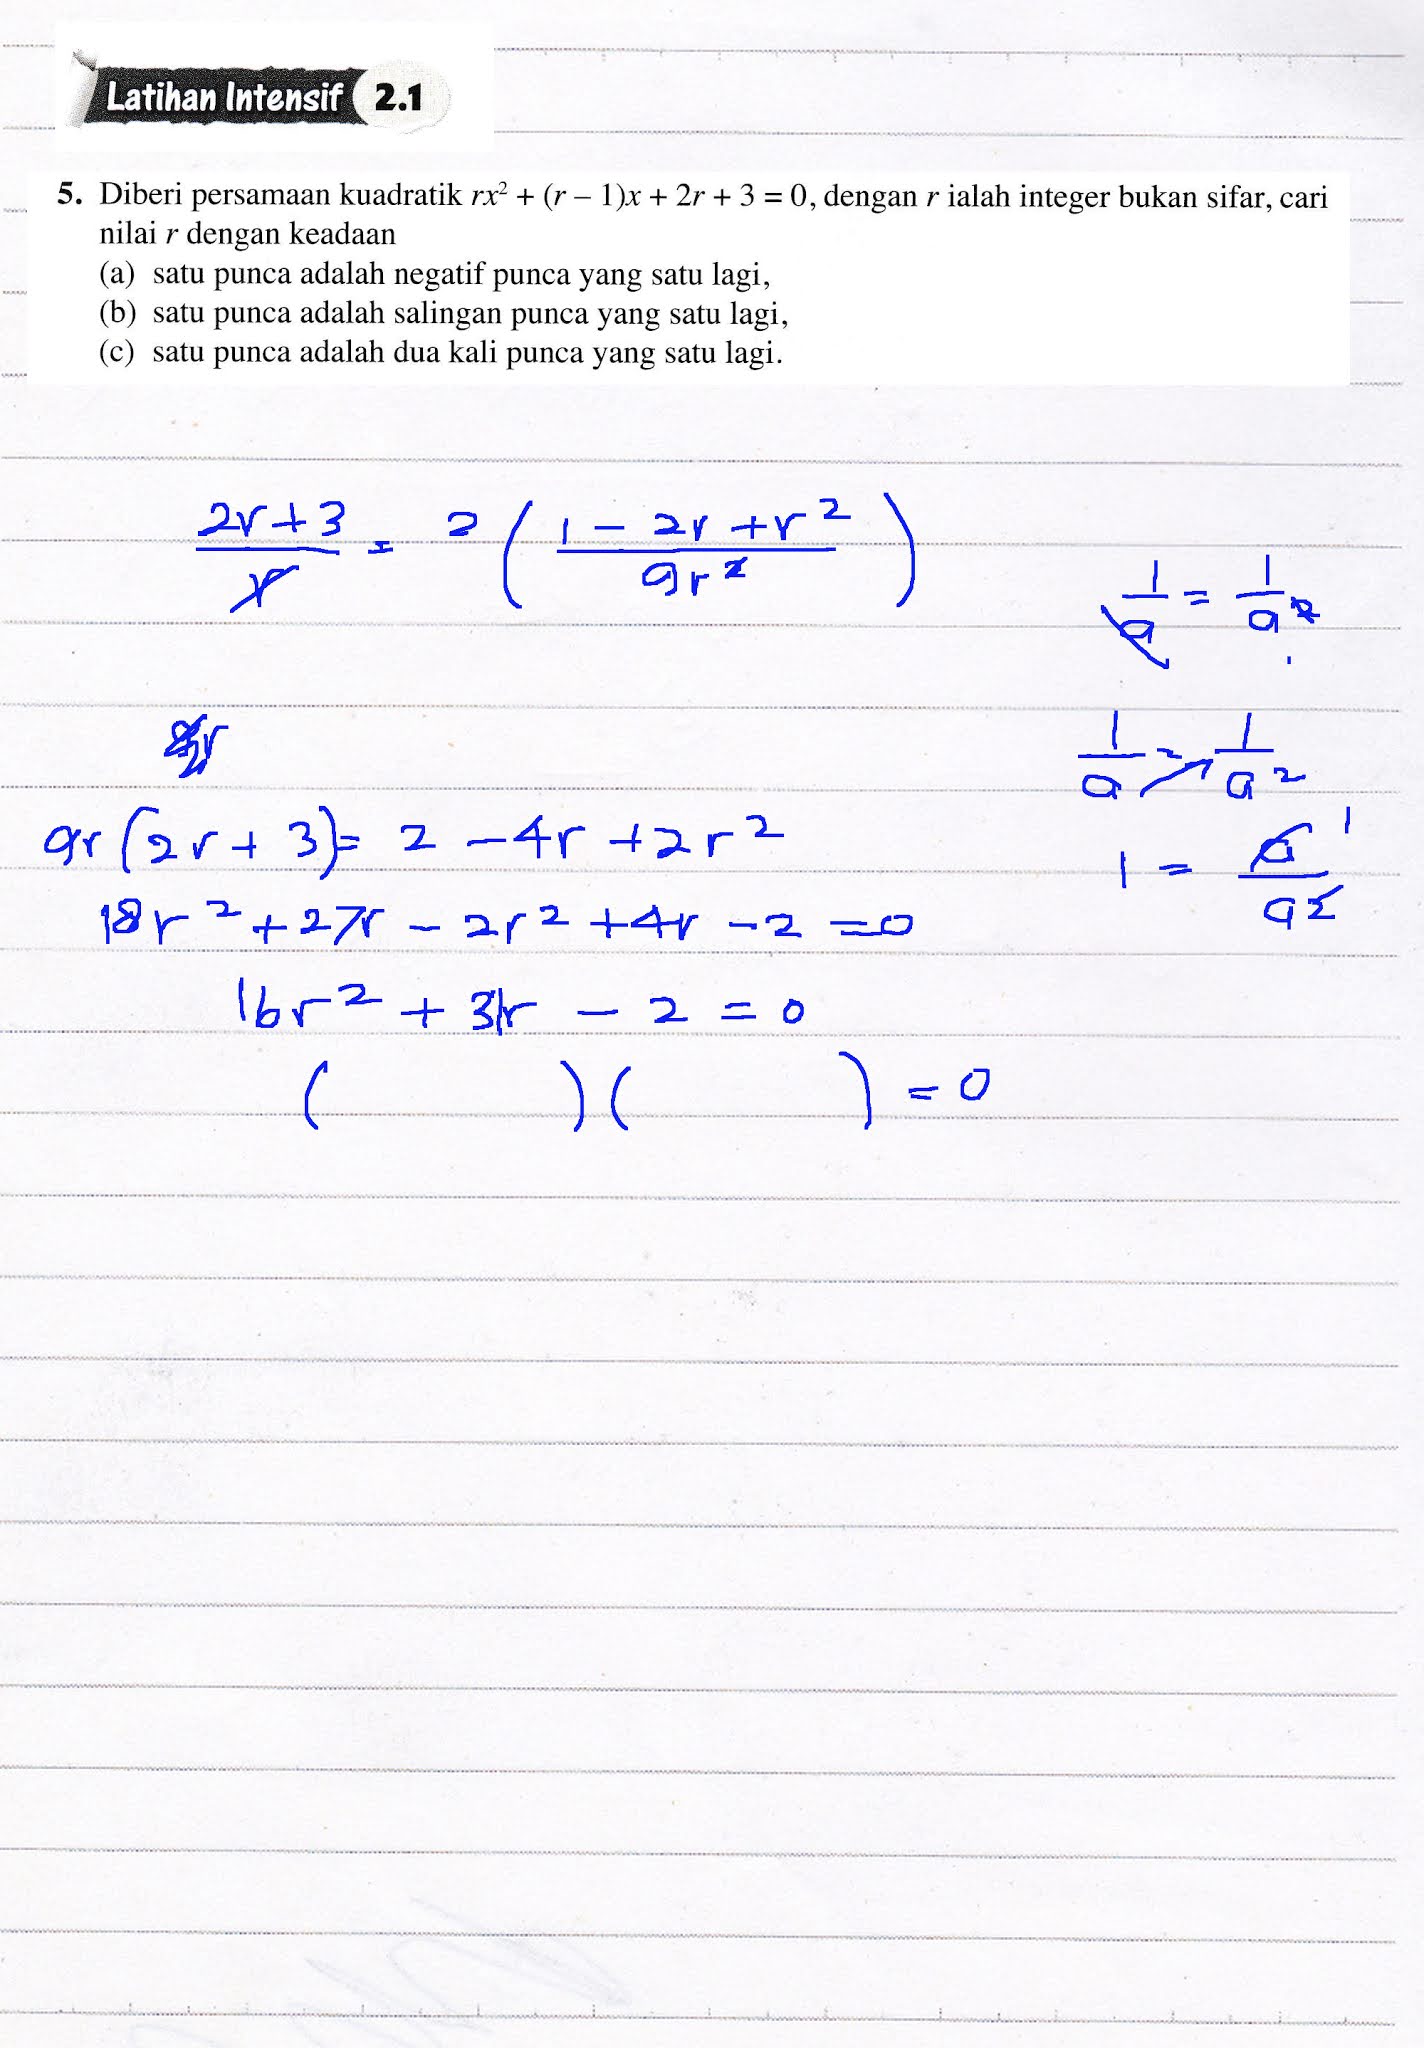 Latihan Intensif 2.1
5. Diberi persamaan kuadratik rx² + (r – 1)x + 2r + 3 = 0, dengan r ialah integer bukan sifar, cari
nilai r dengan keadaan
(a) satu punca adalah negatif punca yang satu lagi,
(b) satu punca adalah salingan punca yang satu lagi,
(c) satu punca adalah dua kali punca yang satu lagi.
(2r + 3)/r = 2 ((1 – 2r + r²)/9r²)
1/a = 1/a²
1/a = 1/a²
9r (2r + 3) = 2 – 4r + 2r²
1 = a/a² 1
18r² + 27r – 2r² + 4r – 2 = 0
16r² + 31r – 2 = 0
( ) ( ) = 0